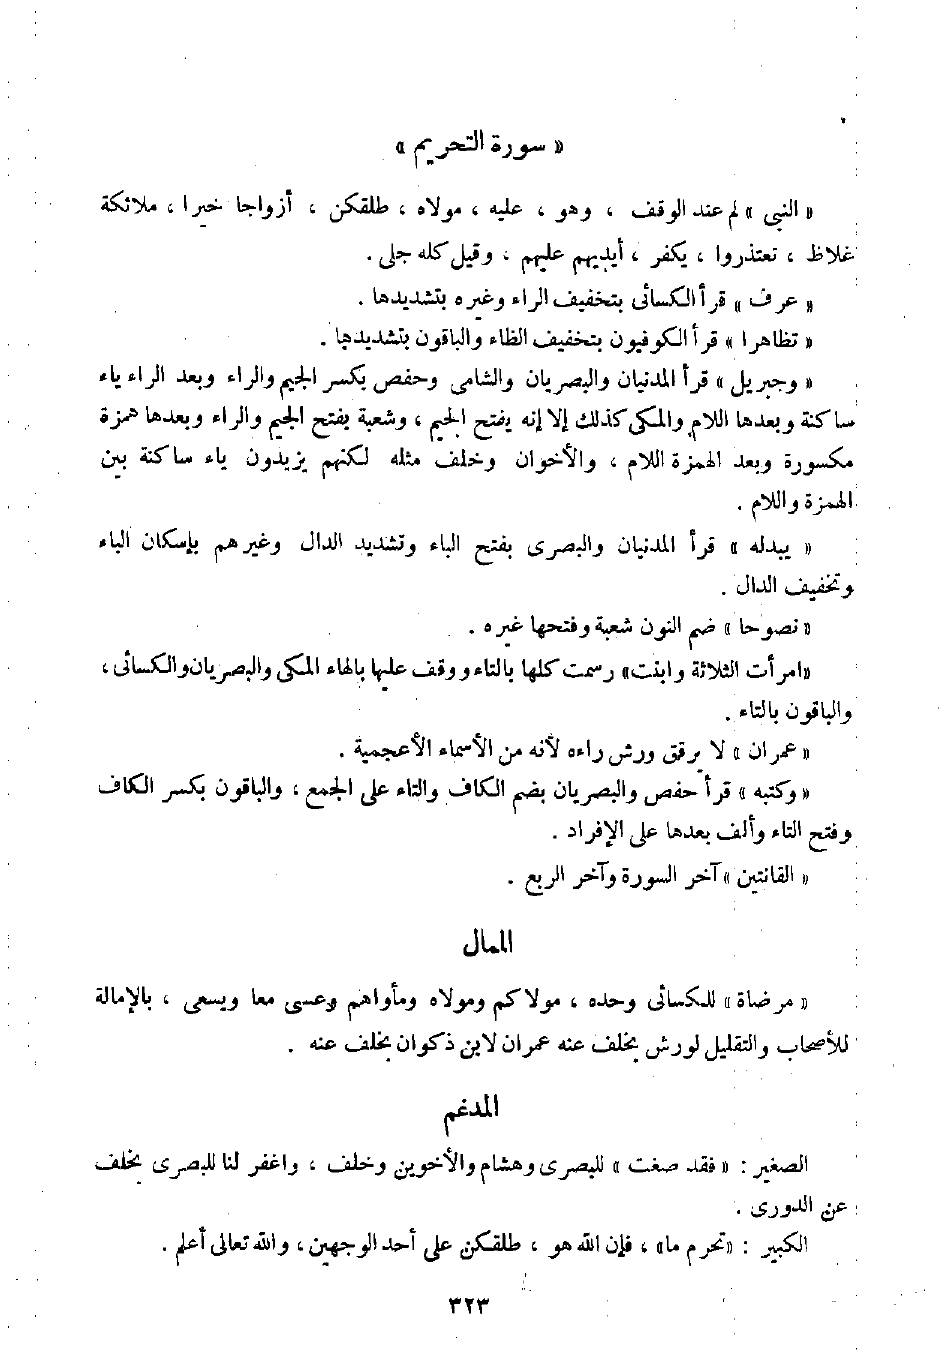 « سورة التحريم »
« النبى » لم عند الوقف ، وهو ، عليه ، مولاه ، طلقكن ، أزواجا خيرا ، ملائكة
غلاظ ، تعتذروا ، يكفر ، أيديهم عليهم ، وقيل كله جلى .
« عرف » قرأ الكسائى بتخفيف الراء وغيره بتشديدها .
« تظاهرا » قرأ الكوفيون بتخفيف الظاء والباقون بتشديدها .
« وجبريل » قرأ المدنيان والبصريان والشامى وحفص بكسر الجيم والراء وبعد الراء ياء
ساكنة وبعدها اللام والمكى كذلك إلا إنه يفتح الجيم ، وشعبة بفتح الجيم والراء وبعدها همزة
مكسورة وبعد الهمزة اللام ، والأخوان وخلف مثله لكنهم يزيدون ياء ساكنة بين
الهمزة واللام .
« يبدله » قرأ المدنيان والبصرى بفتح الباء وتشديد الدال وغيرهم بإسكان الباء
وتخفيف الدال .
« نصوحا » ضم النون شعبة وفتحها غيره .
«امرأت الثلاثة وابنت» رسمت كلها بالتاء ووقف عليها بالهاء المكى والبصريان والكسائى ،
والباقون بالتاء .
« عمران » لا يرقق ورش راءه لأنه من الأسماء الأعجمية .
« وكتبه » قرأ حفص والبصريان بضم الكاف والتاء على الجمع ، والباقون بكسر الكاف
وفتح التاء وألف بعدها على الإفراد .
« القانتين » آخر السورة وآخر الربع .
الممال
« مرضاة » للكسائى وحده ، مولاكم ومولاه ومأواهم وعسى معا ويسعى ، بالإمالة
للأصحاب والتقليل لورش بخلف عنه عمران لابن ذكوان بخلف عنه .
المدغم
الصغير : « فقد صغت » للبصرى وهشام والأخوين وخلف ، واغفر لنا للبصرى بخلف
عن الدورى .
الكبير : «تحرم ما» ، فإن الله هو ، طلقكن على أحد الوجهين ، والله تعالى أعلم .
٣٢٣